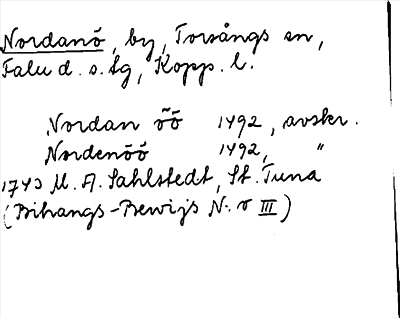 Nordanö, by, Torsångs sn,
Falu d. s. lg, Kopp. l.
Nordan öö 1492, avskr.
Nordenöö 1492, "
1743 M. A. Sahlstedt, St. Tuna
(Bihangs-Bewijs N:o III)